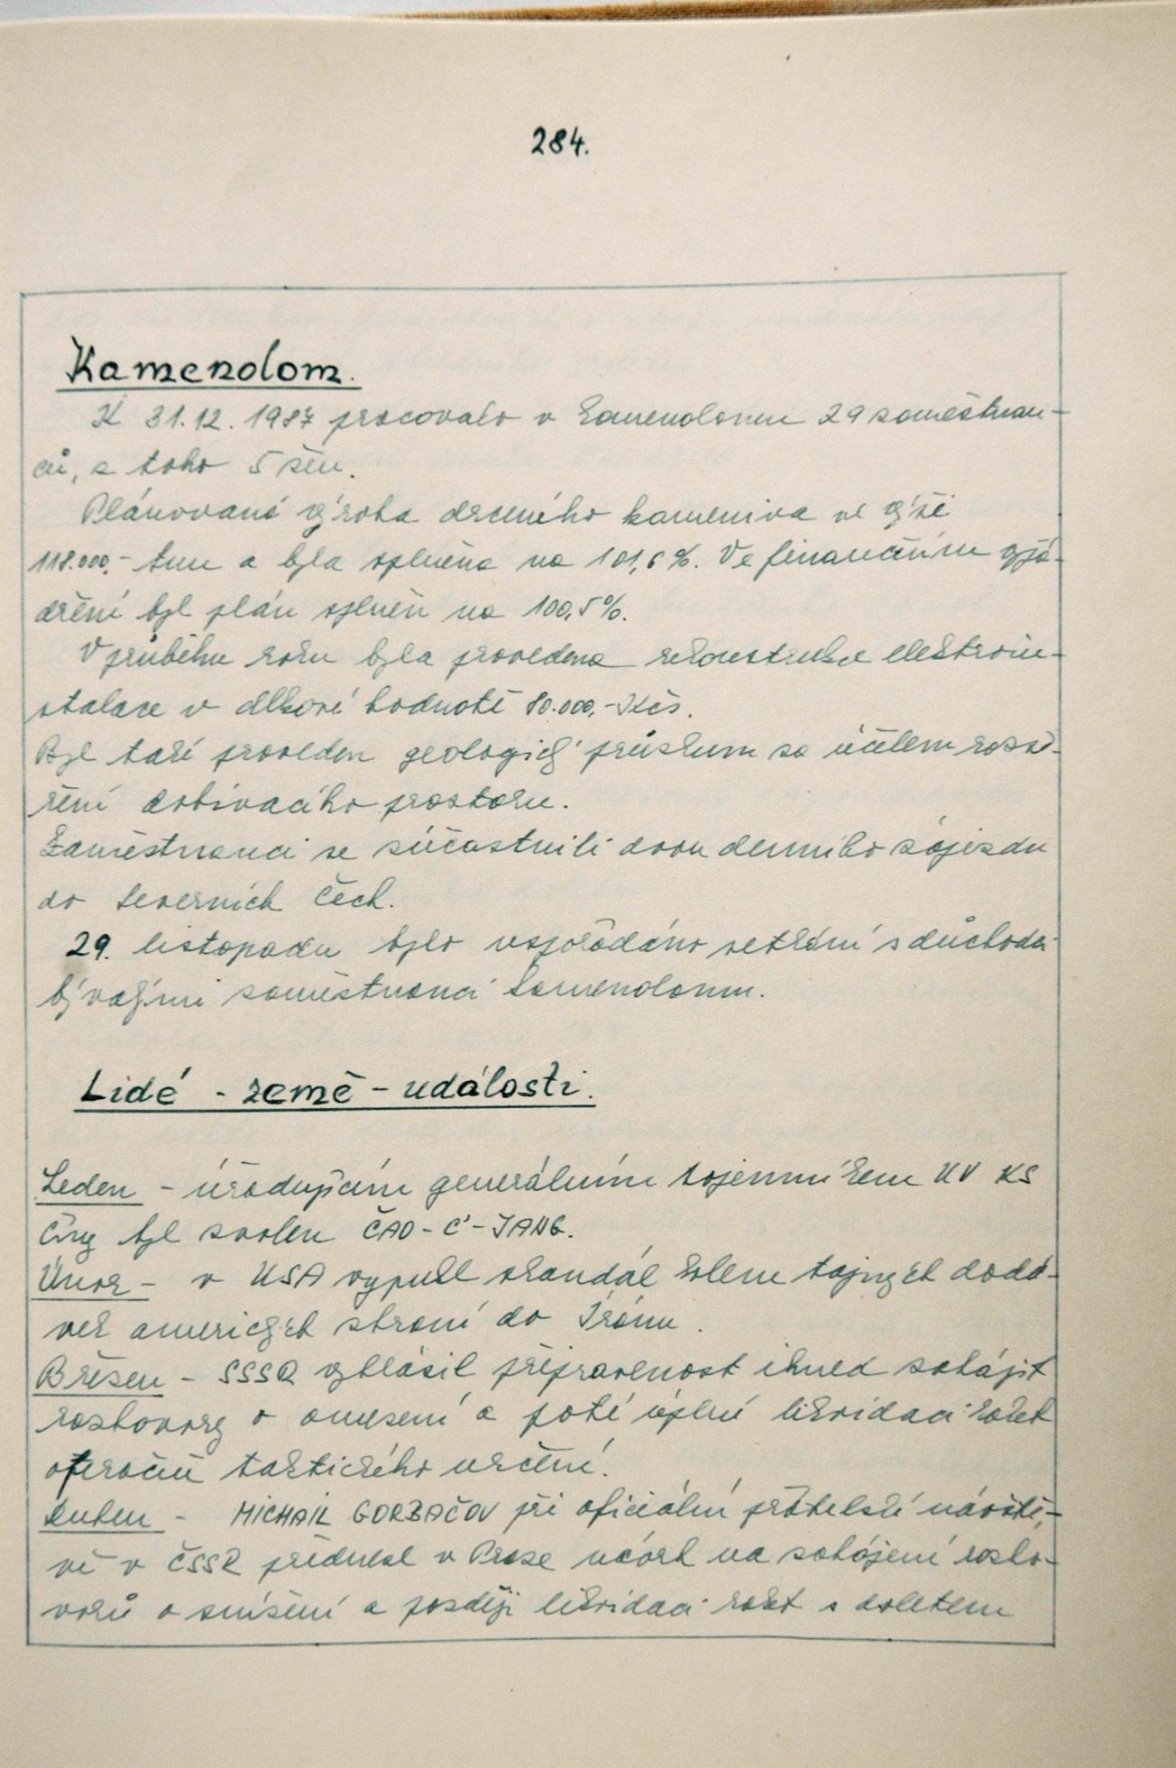 284.
Kamenolom.
K 31.12. 1987 pracovalo v kamenolomu 29 zaměstnan-
ců, z toho 5 žen.
Plánovaná výroba drceného kameniva ve výši
118.000,- tun a byla splněna na 101,6 %. Ve finančním vyjá-
dření byl plán splněn na 100,5 %.
V průběhu roku byla provedena rekonstrukce elektroin-
stalace v celkové hodnotě 80.000,- Kčs.
Byl také proveden geologický průzkum za účelem rozší-
ření dobývacího prostoru.
Zaměstnanci se zúčastnili dvou denního zájezdu
do severních Čech.
29. listopadu bylo uspořádáno setkání s důchodci
bývalými zaměstnanci kamenolomu.
Lidé - země - události.
Leden - úřadujícím generálním tajemníkem ÚV KS
Číny byl zvolen ČAO - C' - JANG.
Únor - v USA vypukl skandál kolem tajných dodá-
vek amerických zbraní do Íránu.
Březen - SSSR vyhlásil připravenost ihned zahájit
rozhovory o omezení a poté úplné likvidaci raket
operačně taktického určení.
Duben - MICHAIL GORBAČOV při oficiální přátelské návště-
vě v ČSSR přednesl v Praze návrh na zahájení rozho-
vorů o snížení a později likvidaci raket s doletem